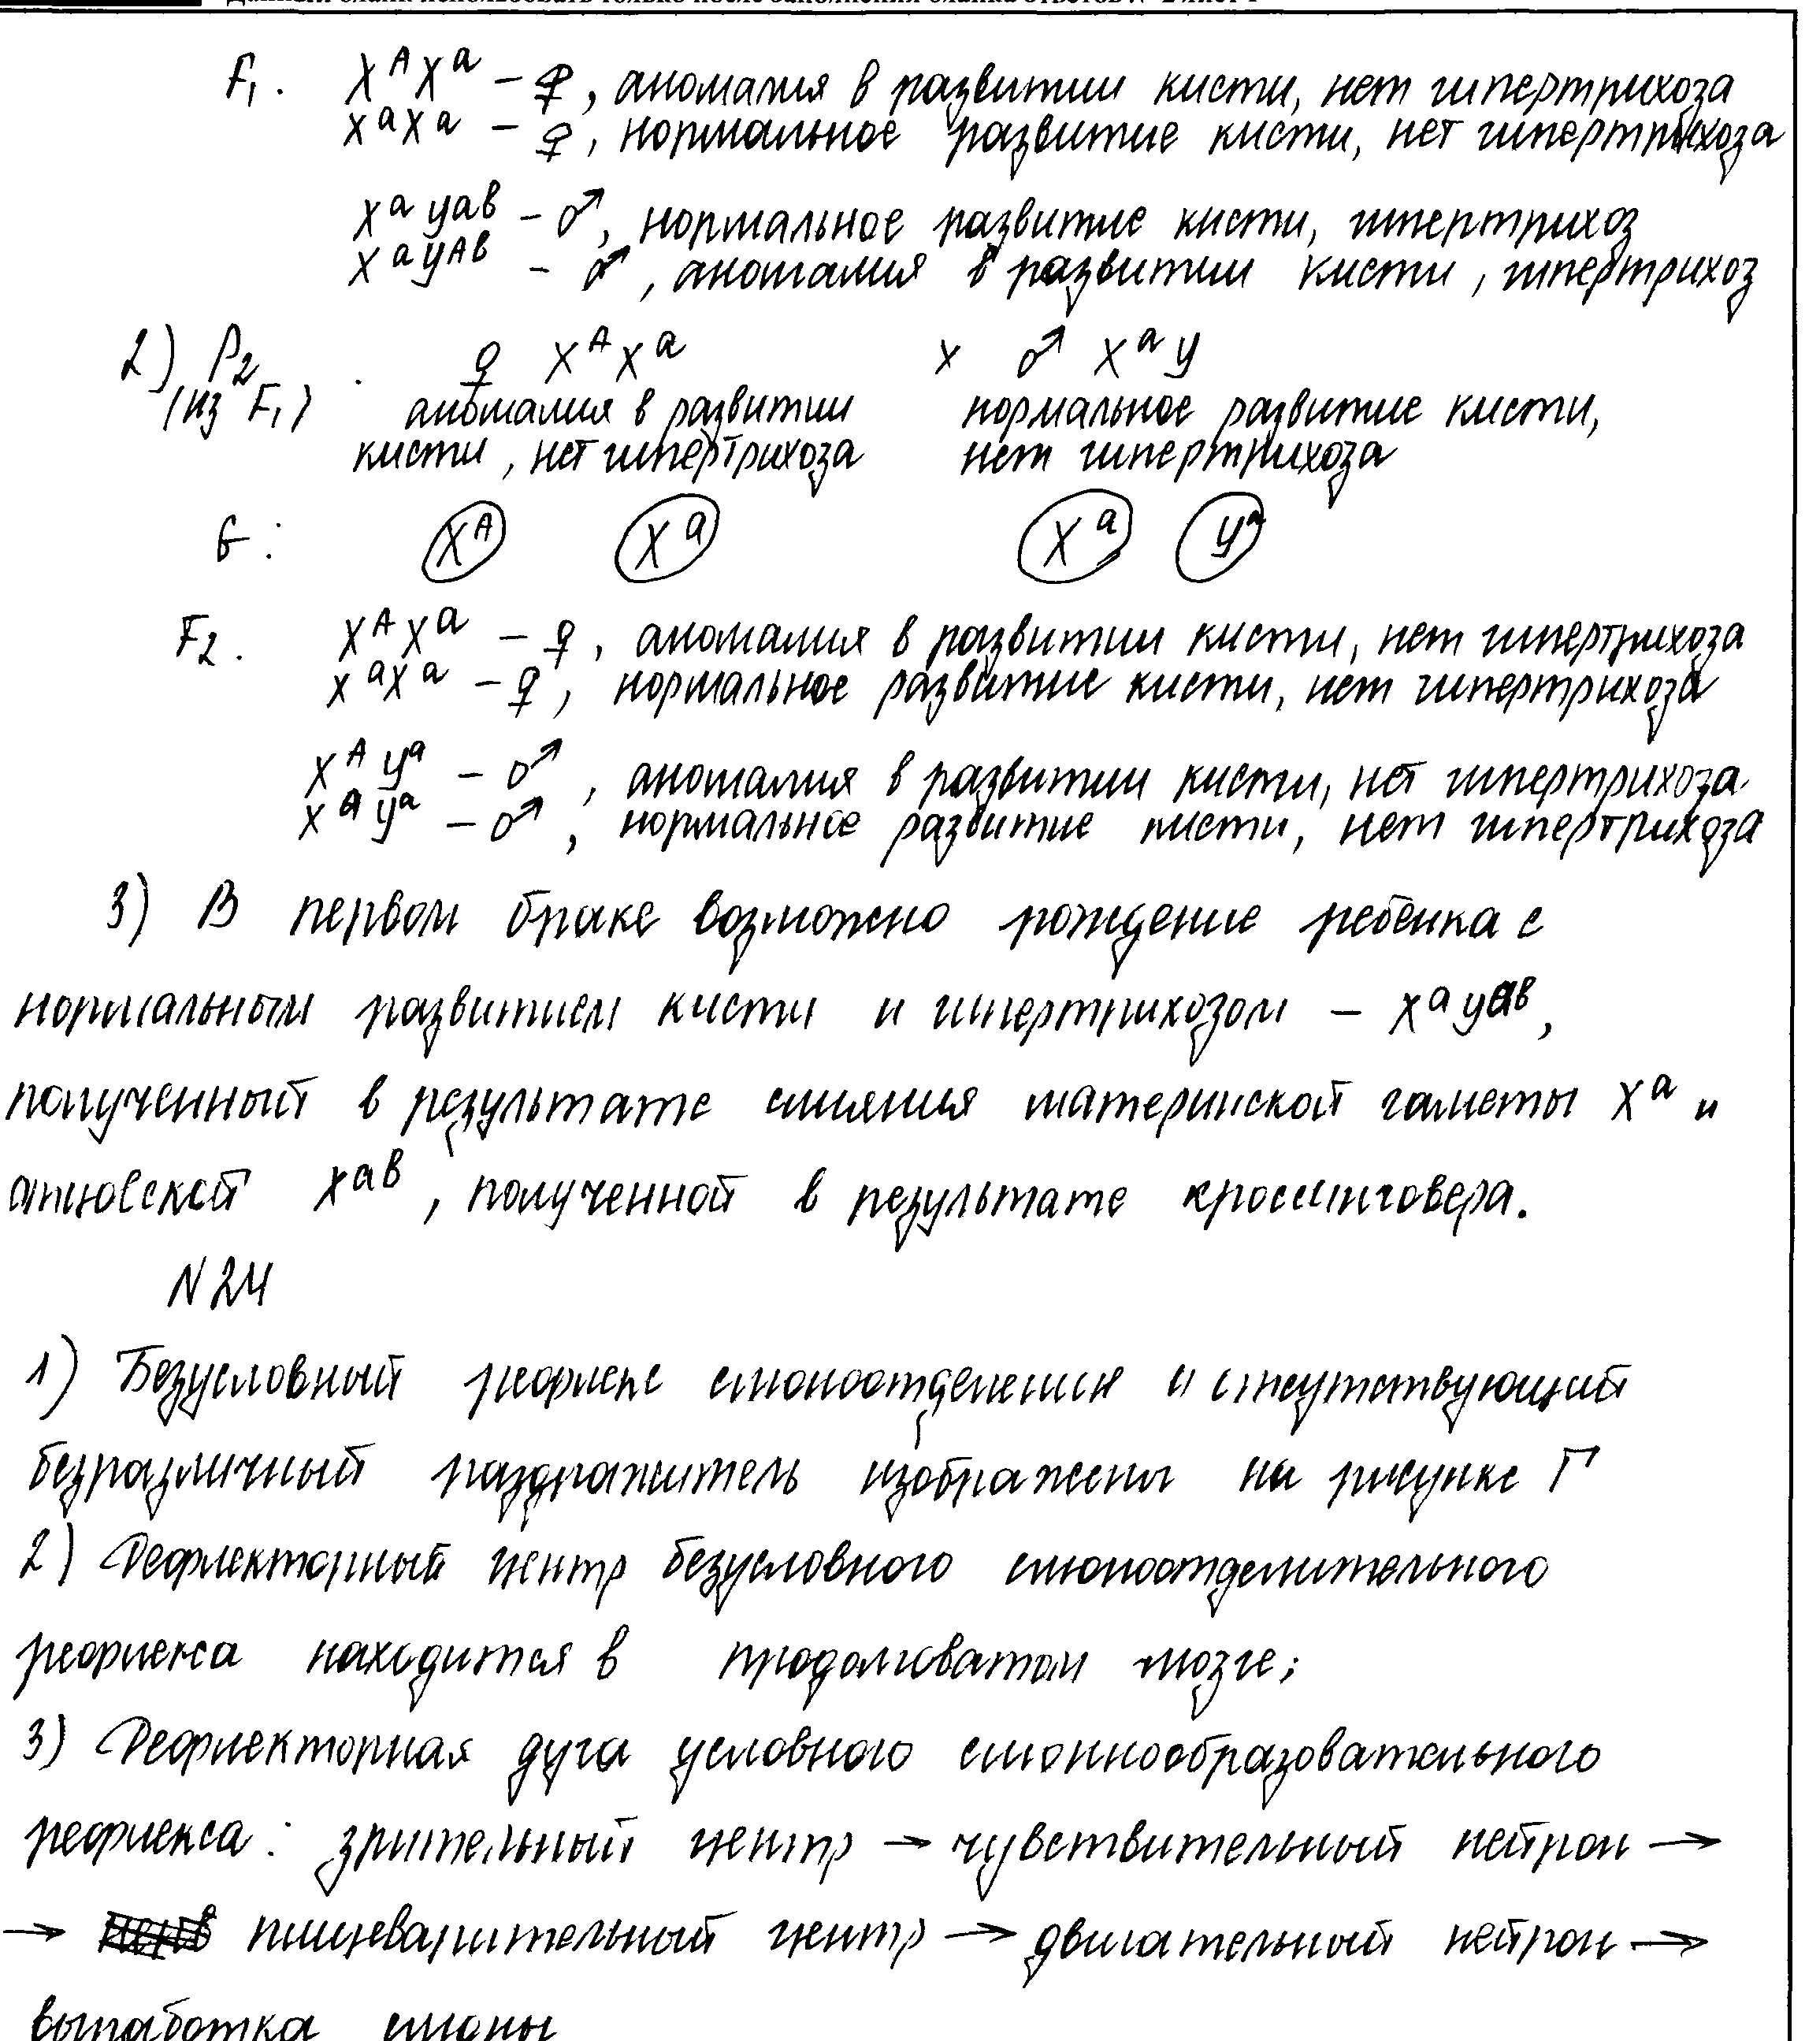 Данный бланк использовать только после заполнения бланка ответов № 2 лист 1
F₁. XᴬXᵃ – ♀, аномалия в развитии кисти, нет гипертрихоза
XᵃXᵃ – ♀, нормальное развитие кисти, нет гипертрихоза
Xᵃ Yᵃᵇ – ♂, нормальное развитие кисти, гипертрихоз
Xᵃ Yᴬᵇ – ♂, аномалия в развитии кисти, гипертрихоз
2) P₂ . ♀ XᴬXᵃ x ♂ XᵃY
(из F₁) аномалия в развитии нормальное развитие кисти,
кисти, нет гипертрихоза нет гипертрихоза
G: Xᴬ Xᵃ Xᵃ Yᵃ
F₂. XᴬXᵃ – ♀, аномалия в развитии кисти, нет гипертрихоза
XᵃXᵃ – ♀, нормальное развитие кисти, нет гипертрихоза
XᴬYᵃ – ♂, аномалия в развитии кисти, нет гипертрихоза
XᵃYᵃ – ♂, нормальное развитие кисти, нет гипертрихоза
3) В первом браке возможно рождение ребенка с
нормальным развитием кисти и гипертрихозом – XᵃYᵃᵇ,
полученный в результате слияния материнской гаметы Xᵃ и
отцовской Xᵃᵇ, полученной в результате кроссинговера.
N24
1) Безусловный рефлекс слюноотделения и отсутствующий
безразличный раздражитель изображены на рисунке Г
2) Рефлекторный центр безусловного слюноотделительного
рефлекса находится в продолговатом мозге;
3) Рефлекторная дуга условного слюннообразовательного
рефлекса: зрительный центр → чувствительный нейрон →
→ пищеварительный центр → двигательный нейрон →
выработка слюны